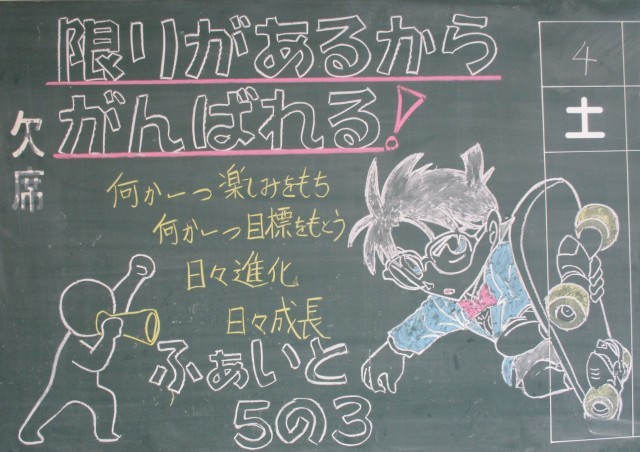 限りがあるから
がんばれる!
何か一つ楽しみをもち
何か一つ目標をもとう
日々進化
日々成長
ふぁいと
5の3
欠席
4
土